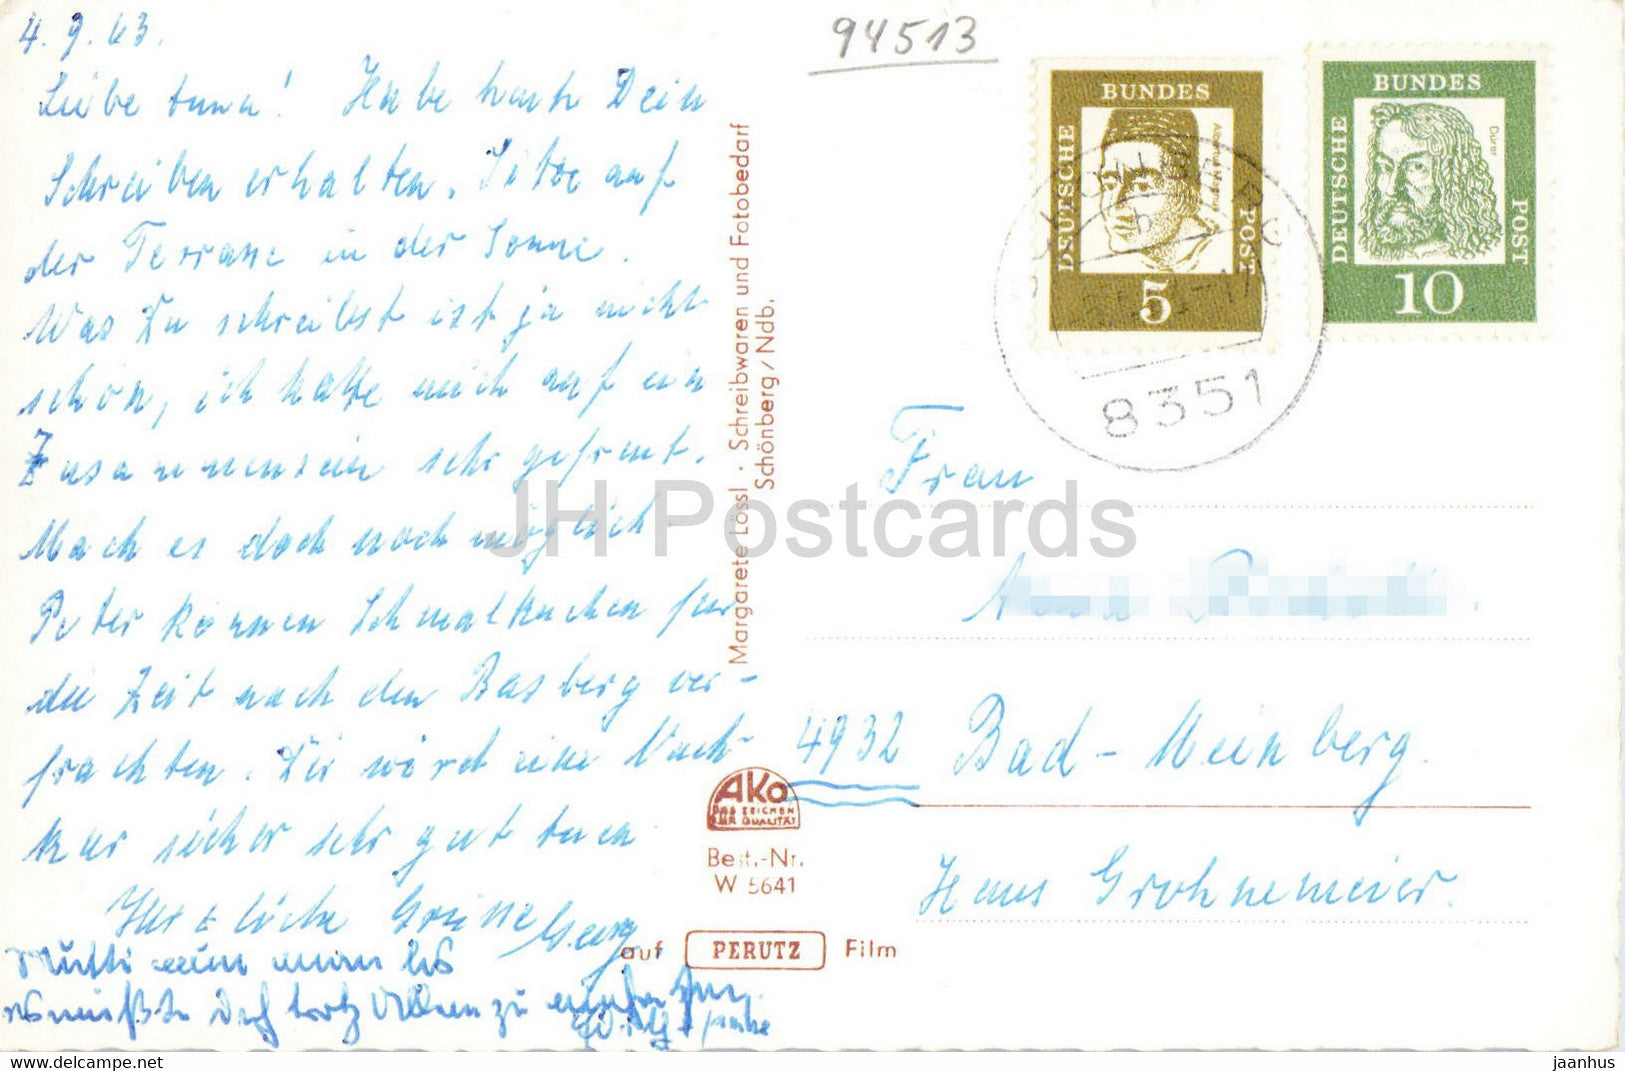 4.9.63.
94513
Liebe Anna! Habe heute Dein
Schreiben erhalten. Sitze auf
der Terrasse in der Sonne.
Was Du schreibst ist ja nicht
schön, ich hatte mich auf ein
Zusammensein sehr gefreut.
Mach es doch noch möglich.
Peter können Schmalkuchen für
die Zeit nach den Basberg ver-
frachten. Dir wird eine Nach-
kur sicher sehr gut tuen
Herzliche Grüsse
Mutti
Margarete Lössl · Schreibwaren und Fotobedarf
Schönberg/Ndb.
AKO
DAS ZEICHEN
FÜR QUALITÄT
Best.-Nr.
W 5641
auf PERUTZ Film
DEUTSCHE BUNDES POST
5
DEUTSCHE BUNDES POST
Dürer
10
8351
Frau
4932 Bad-Meinberg.
Haus Grohnemeier.
JH Postcards
www.delcampe.net
jaanhus